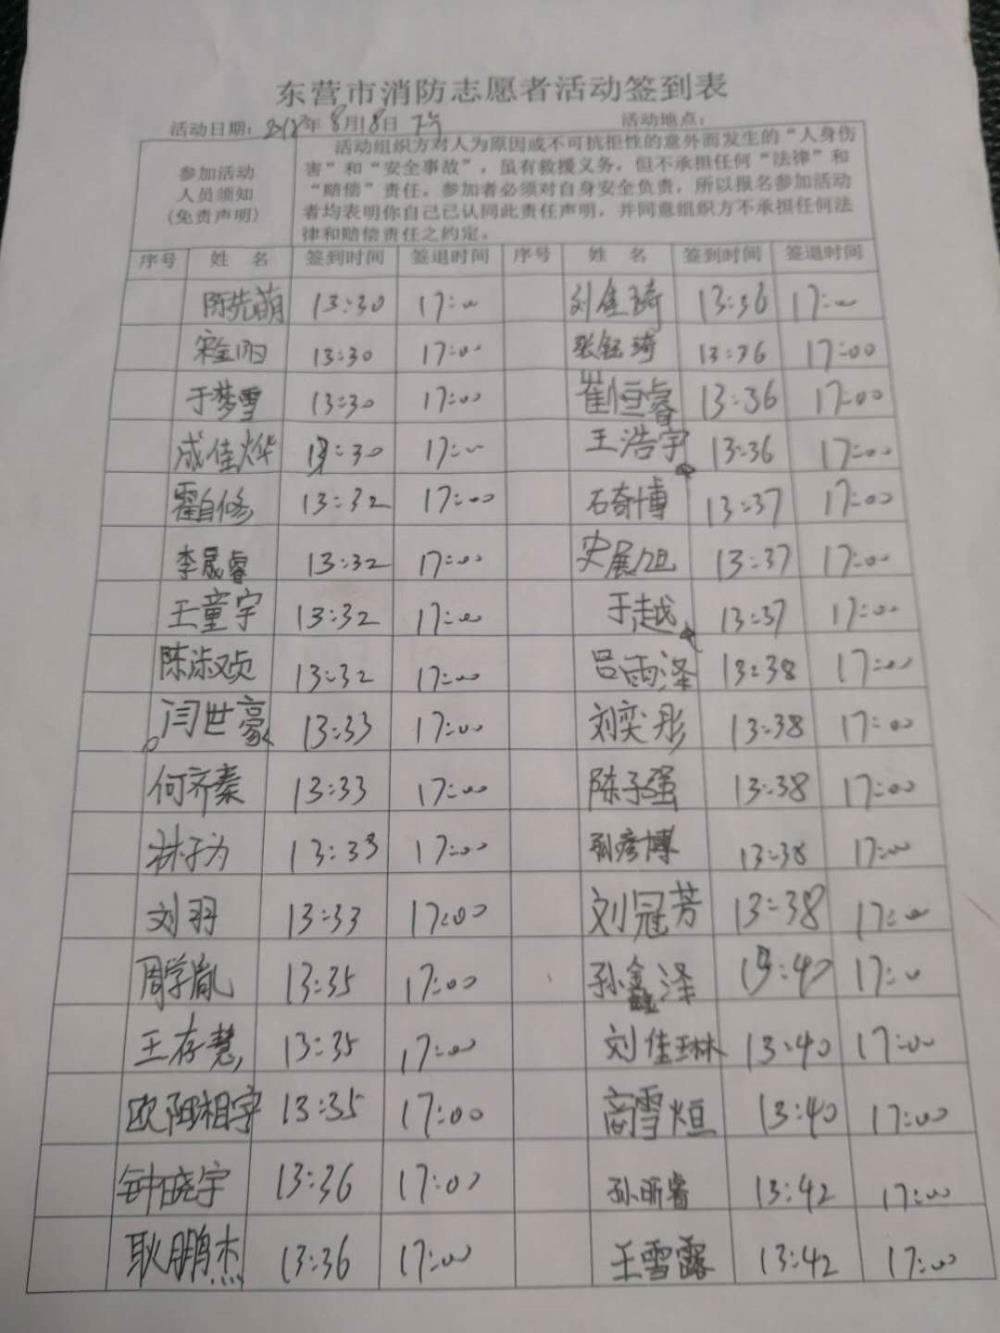 东营市消防志愿者活动签到表
活动日期: 年8月18日 活动地点:
参加活动
人员须知
(免责声明)
活动组织方对人为原因或不可抗拒性的意外而发生的“人身伤
害”和“安全事故”，虽有救援义务，但不承担任何“法律”和
“赔偿”责任。参加者必须对自身安全负责，所以报名参加活动
者均表明你自己已认同此责任声明，并同意组织方不承担任何法
律和赔偿责任之约定。
序号 姓 名 签到时间 签退时间 序号 姓 名 签到时间 签退时间
陈先萌 13:30 17:00 刘金琦 13:36 17:00
13:30 17:00 张钰琦 13:36 17:00
于梦雪 13:30 17:00 崔恒睿 13:36 17:00
成佳烨 13:30 17:00 王浩宇 13:36 17:00
霍自修 13:32 17:00 石奇博 13:37 17:00
李晟睿 13:32 17:00 史展旭 13:37 17:00
王童宇 13:32 17:00 于越 13:37 17:00
陈淑贞 13:32 17:00 吕雨泽 13:38 17:00
闫世豪 13:33 17:00 刘奕彤 13:38 17:00
何齐秦 13:33 17:00 陈子强 13:38 17:00
林子为 13:33 17:00 孙彦博 13:38 17:00
刘羽 13:33 17:00 刘冠芳 13:38 17:00
周学胤 13:35 17:00 孙鑫泽 13:40 17:00
王存慧 13:35 17:00 刘佳琳 13:40 17:00
欧阳相宇 13:35 17:00 商雪烜 13:40 17:00
钟晓宇 13:36 17:00 孙昕睿 13:42 17:00
耿鹏杰 13:36 17:00 王雪露 13:42 17:00